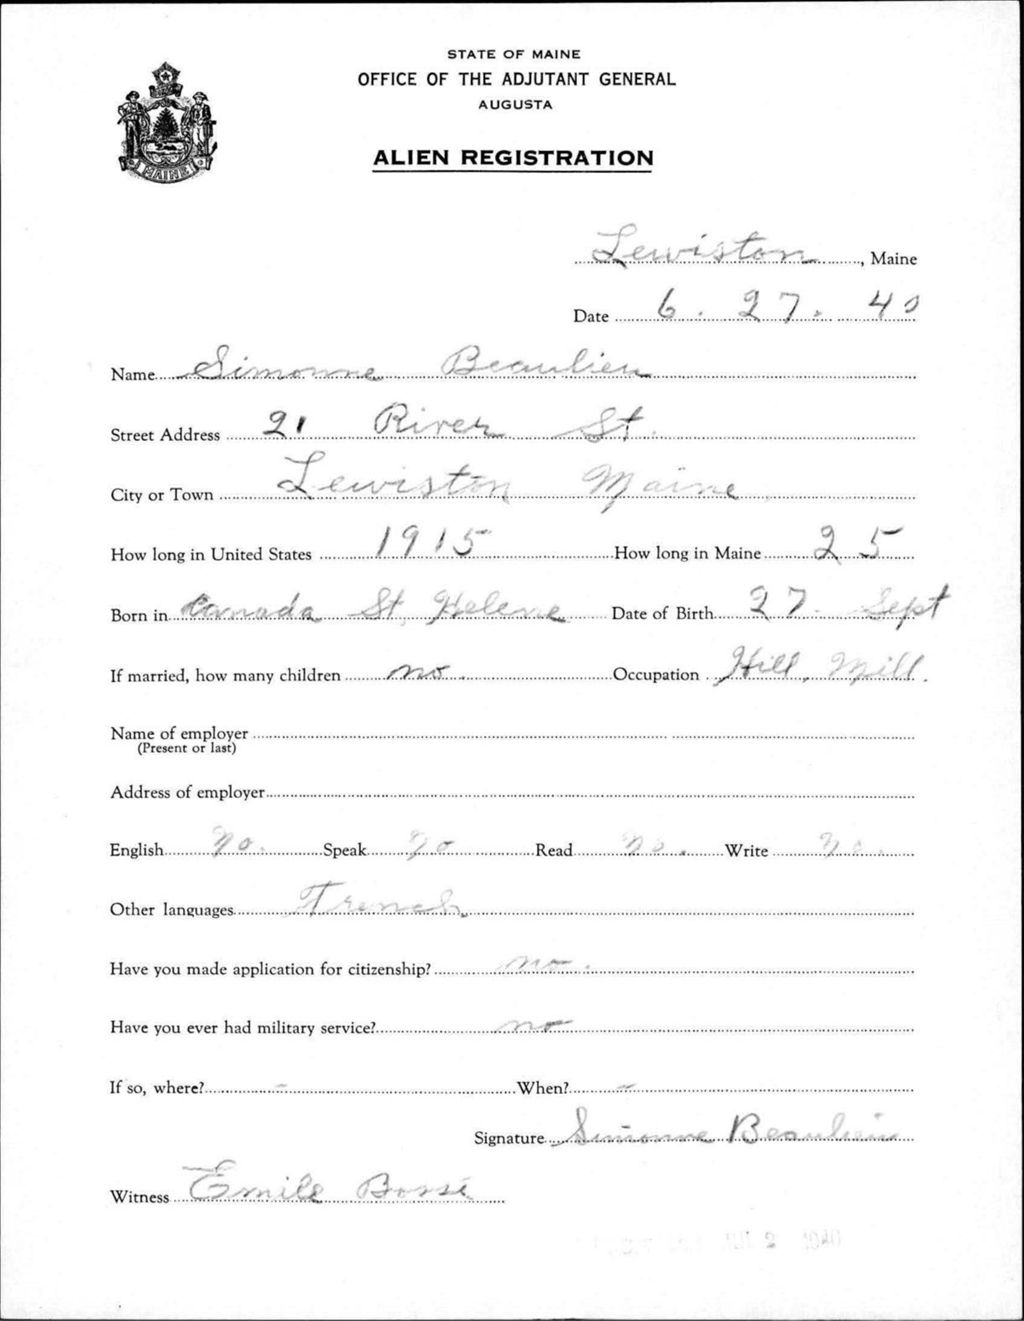 STATE OF MAINE
OFFICE OF THE ADJUTANT GENERAL
AUGUSTA
ALIEN REGISTRATION
MAINE
Lewiston, Maine
Date 6. 27. 40
Name Simonne Beaulieu
Street Address 21 River St.
City or Town Lewiston Maine
How long in United States 1915 How long in Maine 25
Born in Canada St. Helene Date of Birth 27 Sept
If married, how many children no. Occupation Hill. Mill.
Name of employer
(Present or last)
Address of employer
English No. Speak No Read No. Write No.
Other languages French
Have you made application for citizenship? no.
Have you ever had military service? no
If so, where? - When? -
Signature Simonne Beaulieu
Witness Emile Bossé
JUL 2 1940